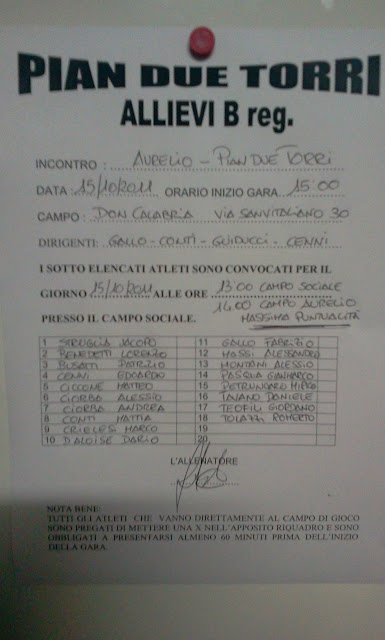 PIAN DUE TORRI
ALLIEVI B reg.
INCONTRO : AURELIO - PIAN DUE TORRI
DATA : 15/10/2011 ORARIO INIZIO GARA 15:00
CAMPO : DON CALABRIA VIA SANVITALIANO 30
DIRIGENTI: GALLO - CONTI - GUIDUCCI - CENNI
I SOTTO ELENCATI ATLETI SONO CONVOCATI PER IL
GIORNO 15/10/2011 ALLE ORE 13:00 CAMPO SOCIALE
14:00 CAMPO AURELIO
PRESSO IL CAMPO SOCIALE. MASSIMA PUNTUALITÀ
1 STRUGLIA JACOPO 11 GALLO FABRIZIO
2 BENEDETTI LORENZO 12 MASSI ALESSANDRO
3 BUSATTI PATRIZIO 13 MONTONI ALESSIO
4 CENNI EDOARDO 14 PASQUA GIANMARCO
5 CICCONE MATTEO 15 PETRUNGARO MIRKO
6 CIORBA ALESSIO 16 TAIANO DANIELE
7 CIORBA ANDREA 17 TEOFILI GIORDANO
8 CONTI MATTIA 18 TOLAZZI ROBERTO
9 CRIELESI MARCO 19
10 D'ALOISE DARIO 20
L'ALLENATORE
NOTA BENE:
TUTTI GLI ATLETI CHE VANNO DIRETTAMENTE AL CAMPO DI GIOCO
SONO PREGATI DI METTERE UNA X NELL'APPOSITO RIQUADRO E SONO
OBBLIGATI A PRESENTARSI ALMENO 60 MINUTI PRIMA DELL'INIZIO
DELLA GARA.